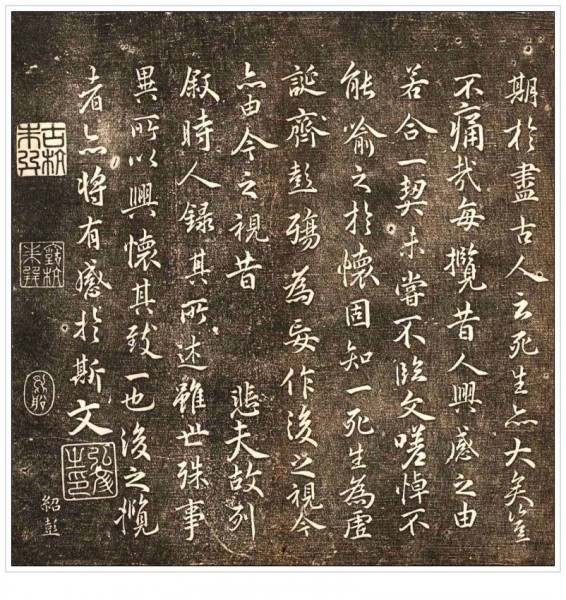 期於盡古人云死生亦大矣豈
不痛哉每攬昔人興感之由
若合一契未嘗不臨文嗟悼不
能喻之於懷固知一死生為虛
誕齊彭殤為妄作後之視今
亦由今之視昔 悲夫故列
叙時人錄其所述雖世殊事
異所以興懷其致一也後之攬
者亦將有感於斯文
紹彭